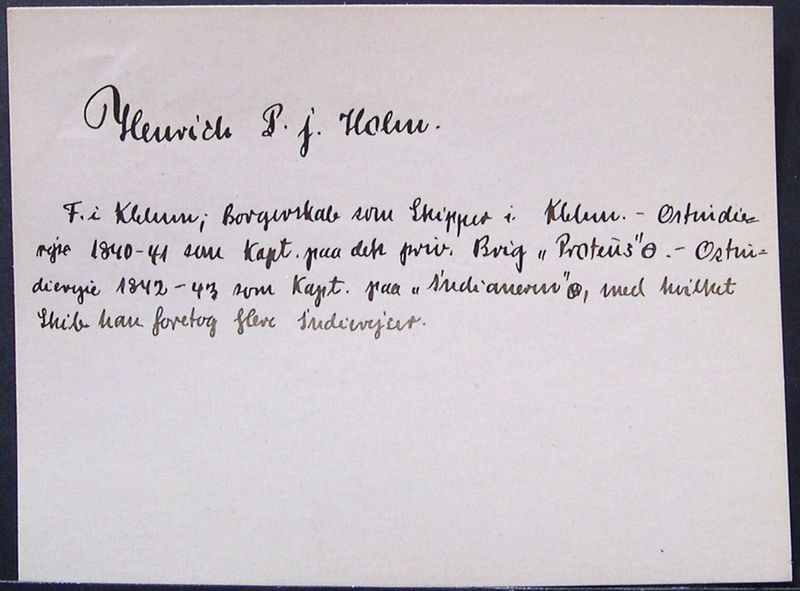 Henrich P. J. Holm.
F. i Kbhvn; Borgerskab som Skipper i Kbhvn. - Ostindie=
rejse 1840-41 som Kapt. paa det priv. Brig „Proteus". - Ostin=
dierejse 1842-43 som Kapt. paa „Indianeren", med hvilket
Skib han foretog flere Indierejser.